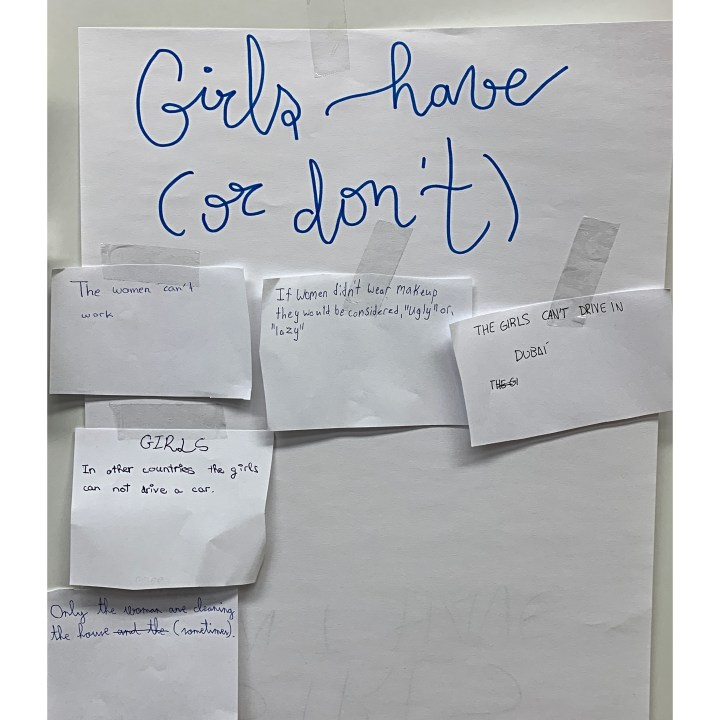 Girls have
(or don't)
The women can't
work
If women didn't wear makeup
they would be considered, "Ugly" or,
"lazy"
THE GIRLS CAN'T DRIVE IN
DUBAI
THE GI
GIRLS
In other countries the girls
can not drive a car.
Only the woman are cleaning
the house and the (sometimes).